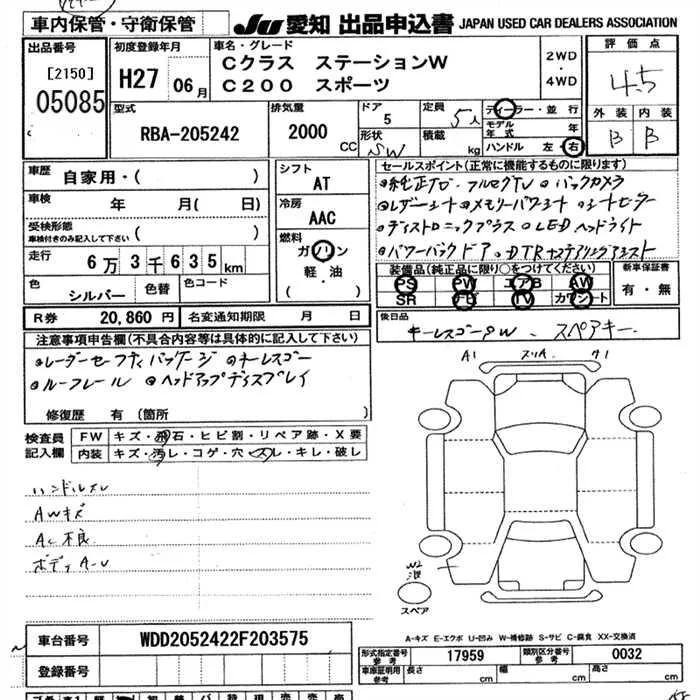 車内保管・守衛保管
JU 愛知 出品申込書 JAPAN USED CAR DEALERS ASSOCIATION
出品番号
[2150]
05085
初度登録年月
H27 06月
車名・グレード
Cクラス ステーションW
C200 スポーツ
2WD
・
4WD
評価点
4.5
外装 内装
B B
型式
RBA-205242
排気量
2000 CC
ドア
5
形状
SW
定員
5人
積載
kg
ディーラー・並行
モデル年式 年
ハンドル 左・右
車歴 自家用・( )
車検 年 月( 日)
受検形態
車検付きのみ記入して下さい ( )
走行 6万3千635km
色 シルバー 色替 色コード
R券 20,860円 名変通知期限 月 日
シフト
AT
冷房
AAC
燃料
ガソリン
軽・油
( ・ )
セールスポイント(正常に機能するものに限ります)
純正ナビ・フルセグTV バックカメラ
レザーシート メモリーパワーシート シートヒーター
ディストロニックプラス LEDヘッドライト
パワーバックドア DTR+ステアリングアシスト
装備品(純正品に限り○をつけてください)
PS PW エアB AW
SR ナビ TV カワシート
新車保証書
有・無
後日品
キーレスゴー スペアキー
注意事項申告欄(不具合内容等は具体的に記入して下さい)
レーダーセーフティパッケージ キーレスゴー
ルーフレール ヘッドアップディスプレイ
修復歴 有 (箇所 )
検査員記入欄
FW キズ・飛石・ヒビ割・リペア跡・X要
内装 キズ・汚レ・コゲ・穴・スレ・キレ・破レ
ハンドルスレ
AWキズ
AC不良
ボディA-U
A1 スリA A1
W2
スペア
A-キズ E-エクボ U-凹み W-補修跡 S-サビ C-腐食 XX-交換済
車台番号 WDD2052422F203575
登録番号
形式指定番号 参考 17959 類別区分番号 参考 0032
車庫証明用参考 長さ cm 幅 cm 高さ cm